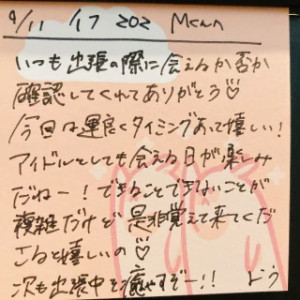 9/11 17 202
いつも出張の際に会えるか否か
確認してくれてありがとう♡
今回は運良くタイミングあって嬉しい！
アイドルとしても会える日が楽しみ
だねー！できることできないことが
複雑だけど是非覚えて来てくだ
さると嬉しいの♡
次も出張中を癒やすぞー!!